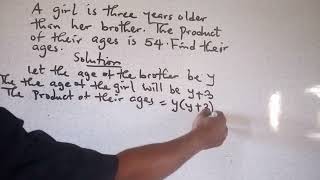 A girl is three years older
than her brother. The product
of their ages is 54. Find their
ages.
Solution
let the age of the brother be y
The the age of the girl will be y+3
The Product of their ages = y(y+3)